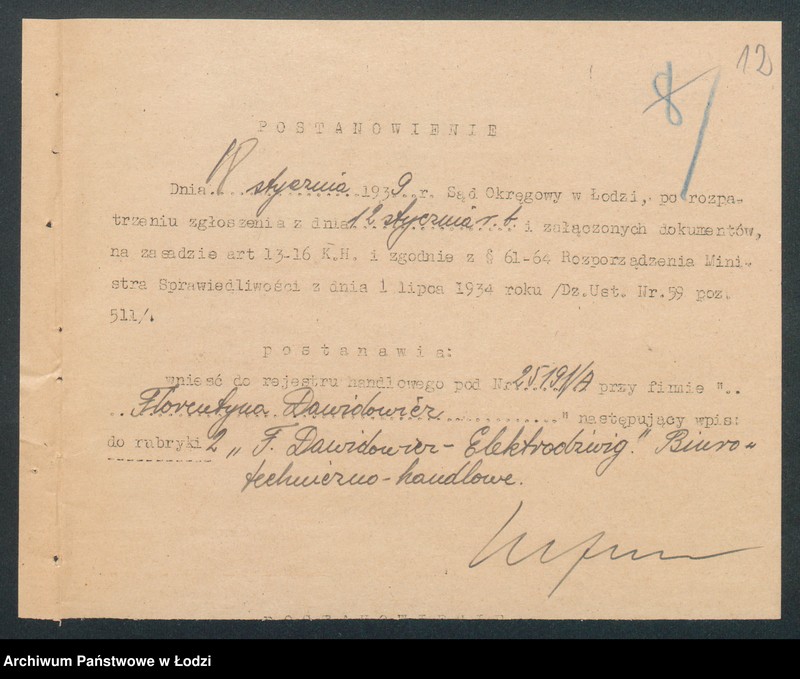 12
8
POSTANOWIENIE
Dnia 18 stycznia 1939 r. Sąd Okręgowy w Łodzi, po rozpa-
trzeniu zgłoszenia z dnia 12 stycznia r. b. i załączonych dokumentów,
na zasadzie art 13-16 K.H. i zgodnie z § 61-64 Rozporządzenia Mini-
stra Sprawiedliwości z dnia 1 lipca 1934 roku /Dz.Ust. Nr.59 poz.
511/.
postanawia:
wnieść do rejestru handlowego pod Nr. 25191/A przy firmie "..
..Florentyna Dawidowicz.............." następujący wpis:
do rubryki 2 „F. Dawidowicz - Elektrodźwig." Biuro-
techniczno-handlowe.
POSTANOWIENIE
Archiwum Państwowe w Łodzi